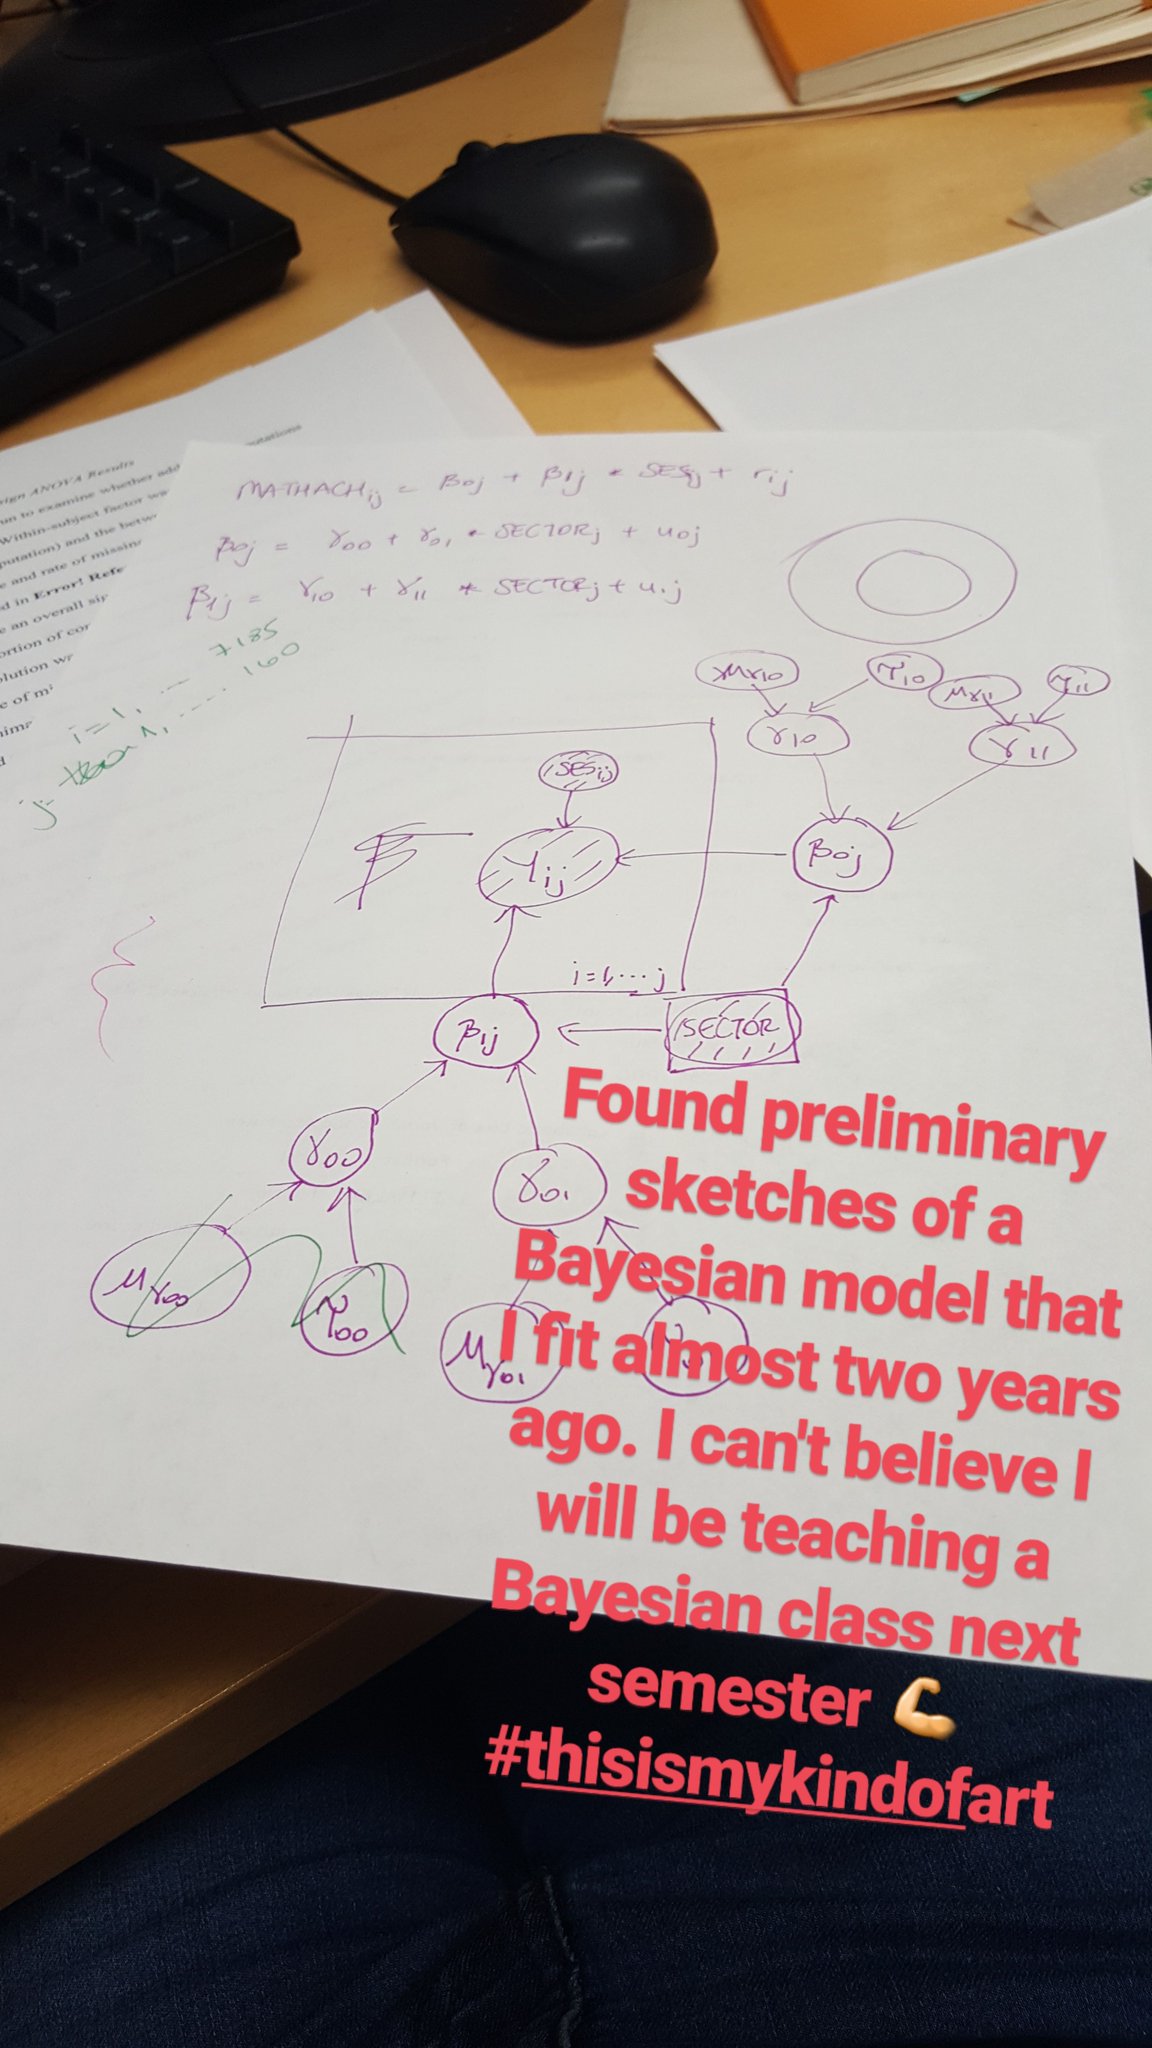 sign ANOVA Results
un to examine whether add
Within-subject factor wa
putation) and the betw
e and rate of missin
d in Error! Refe
e an overall si
ortion of cor
olution w
e of mi
MATHACHij = β0j + β1j * SESij + rij
β0j = γ00 + γ01 * SECTORj + u0j
β1j = γ10 + γ11 * SECTORj + u1j
i = 1, ... 7185
j 1, .... 160
μγ10 τ10 μγ11 τ11
γ10 γ11
SESij
Yij β0j
i = 1, ... j
β1j SECTOR
γ00 γ01
μγ00 τ00 μγ01
Found preliminary
sketches of a
Bayesian model that
I fit almost two years
ago. I can't believe I
will be teaching a
Bayesian class next
semester 💪
#thisismykindofart